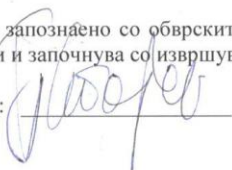 запознаено со обврскит
и и започнува со извршув
: